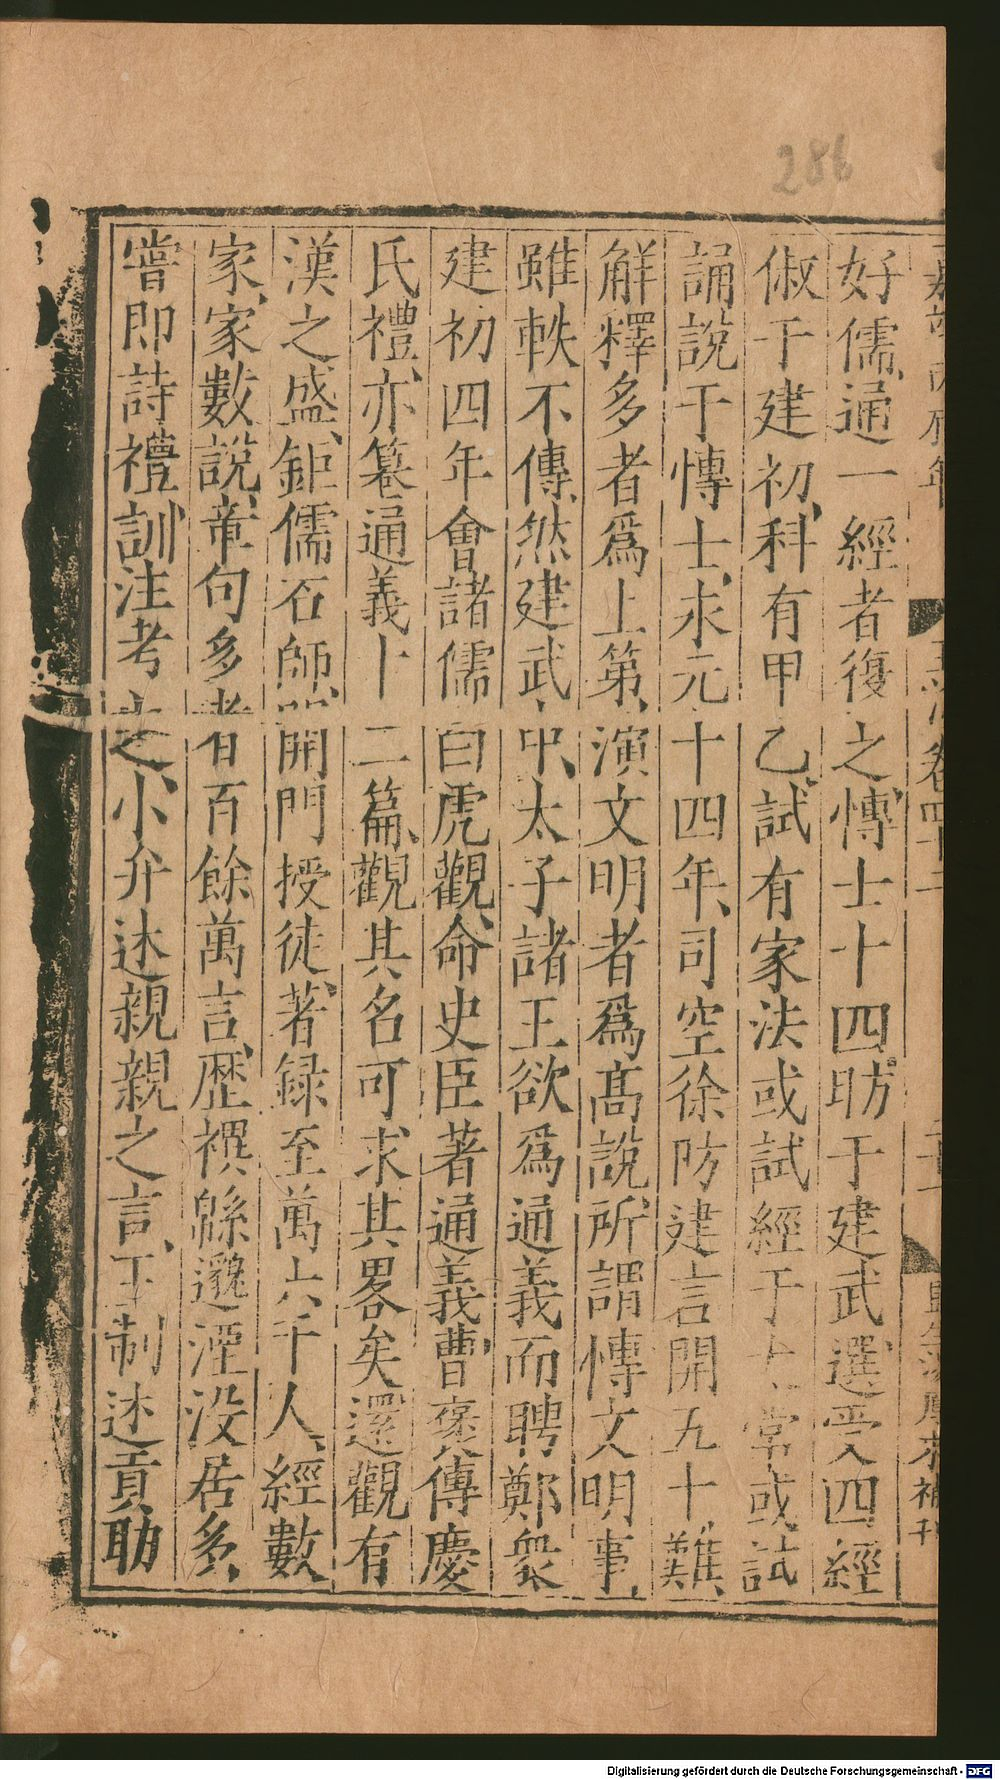 286
好儒通一經者復之愽士十四昉于建武選受四經
俶于建初科有甲乙試有家法或試經于太常或試
誦說于愽士永元十四年司空徐防建言開五十難
解釋多者爲上第演文明者爲高說所謂愽文明事
雖軼不傳然建武中太子諸王欲爲通義而聘鄭衆
建初四年會諸儒白虎觀命史臣著通義曹褒傳慶
氏禮亦篹通義十二篇觀其名可求其畧矣還觀有
漢之盛鉅儒石師開門授徒著録至萬六千人經數
家家數說章句多者百餘萬言歴禩緜邈湮没居多
嘗即詩禮訓注考之小弁述親親之言王制述貢助
Digitalisierung gefördert durch die Deutsche Forschungsgemeinschaft - DFG